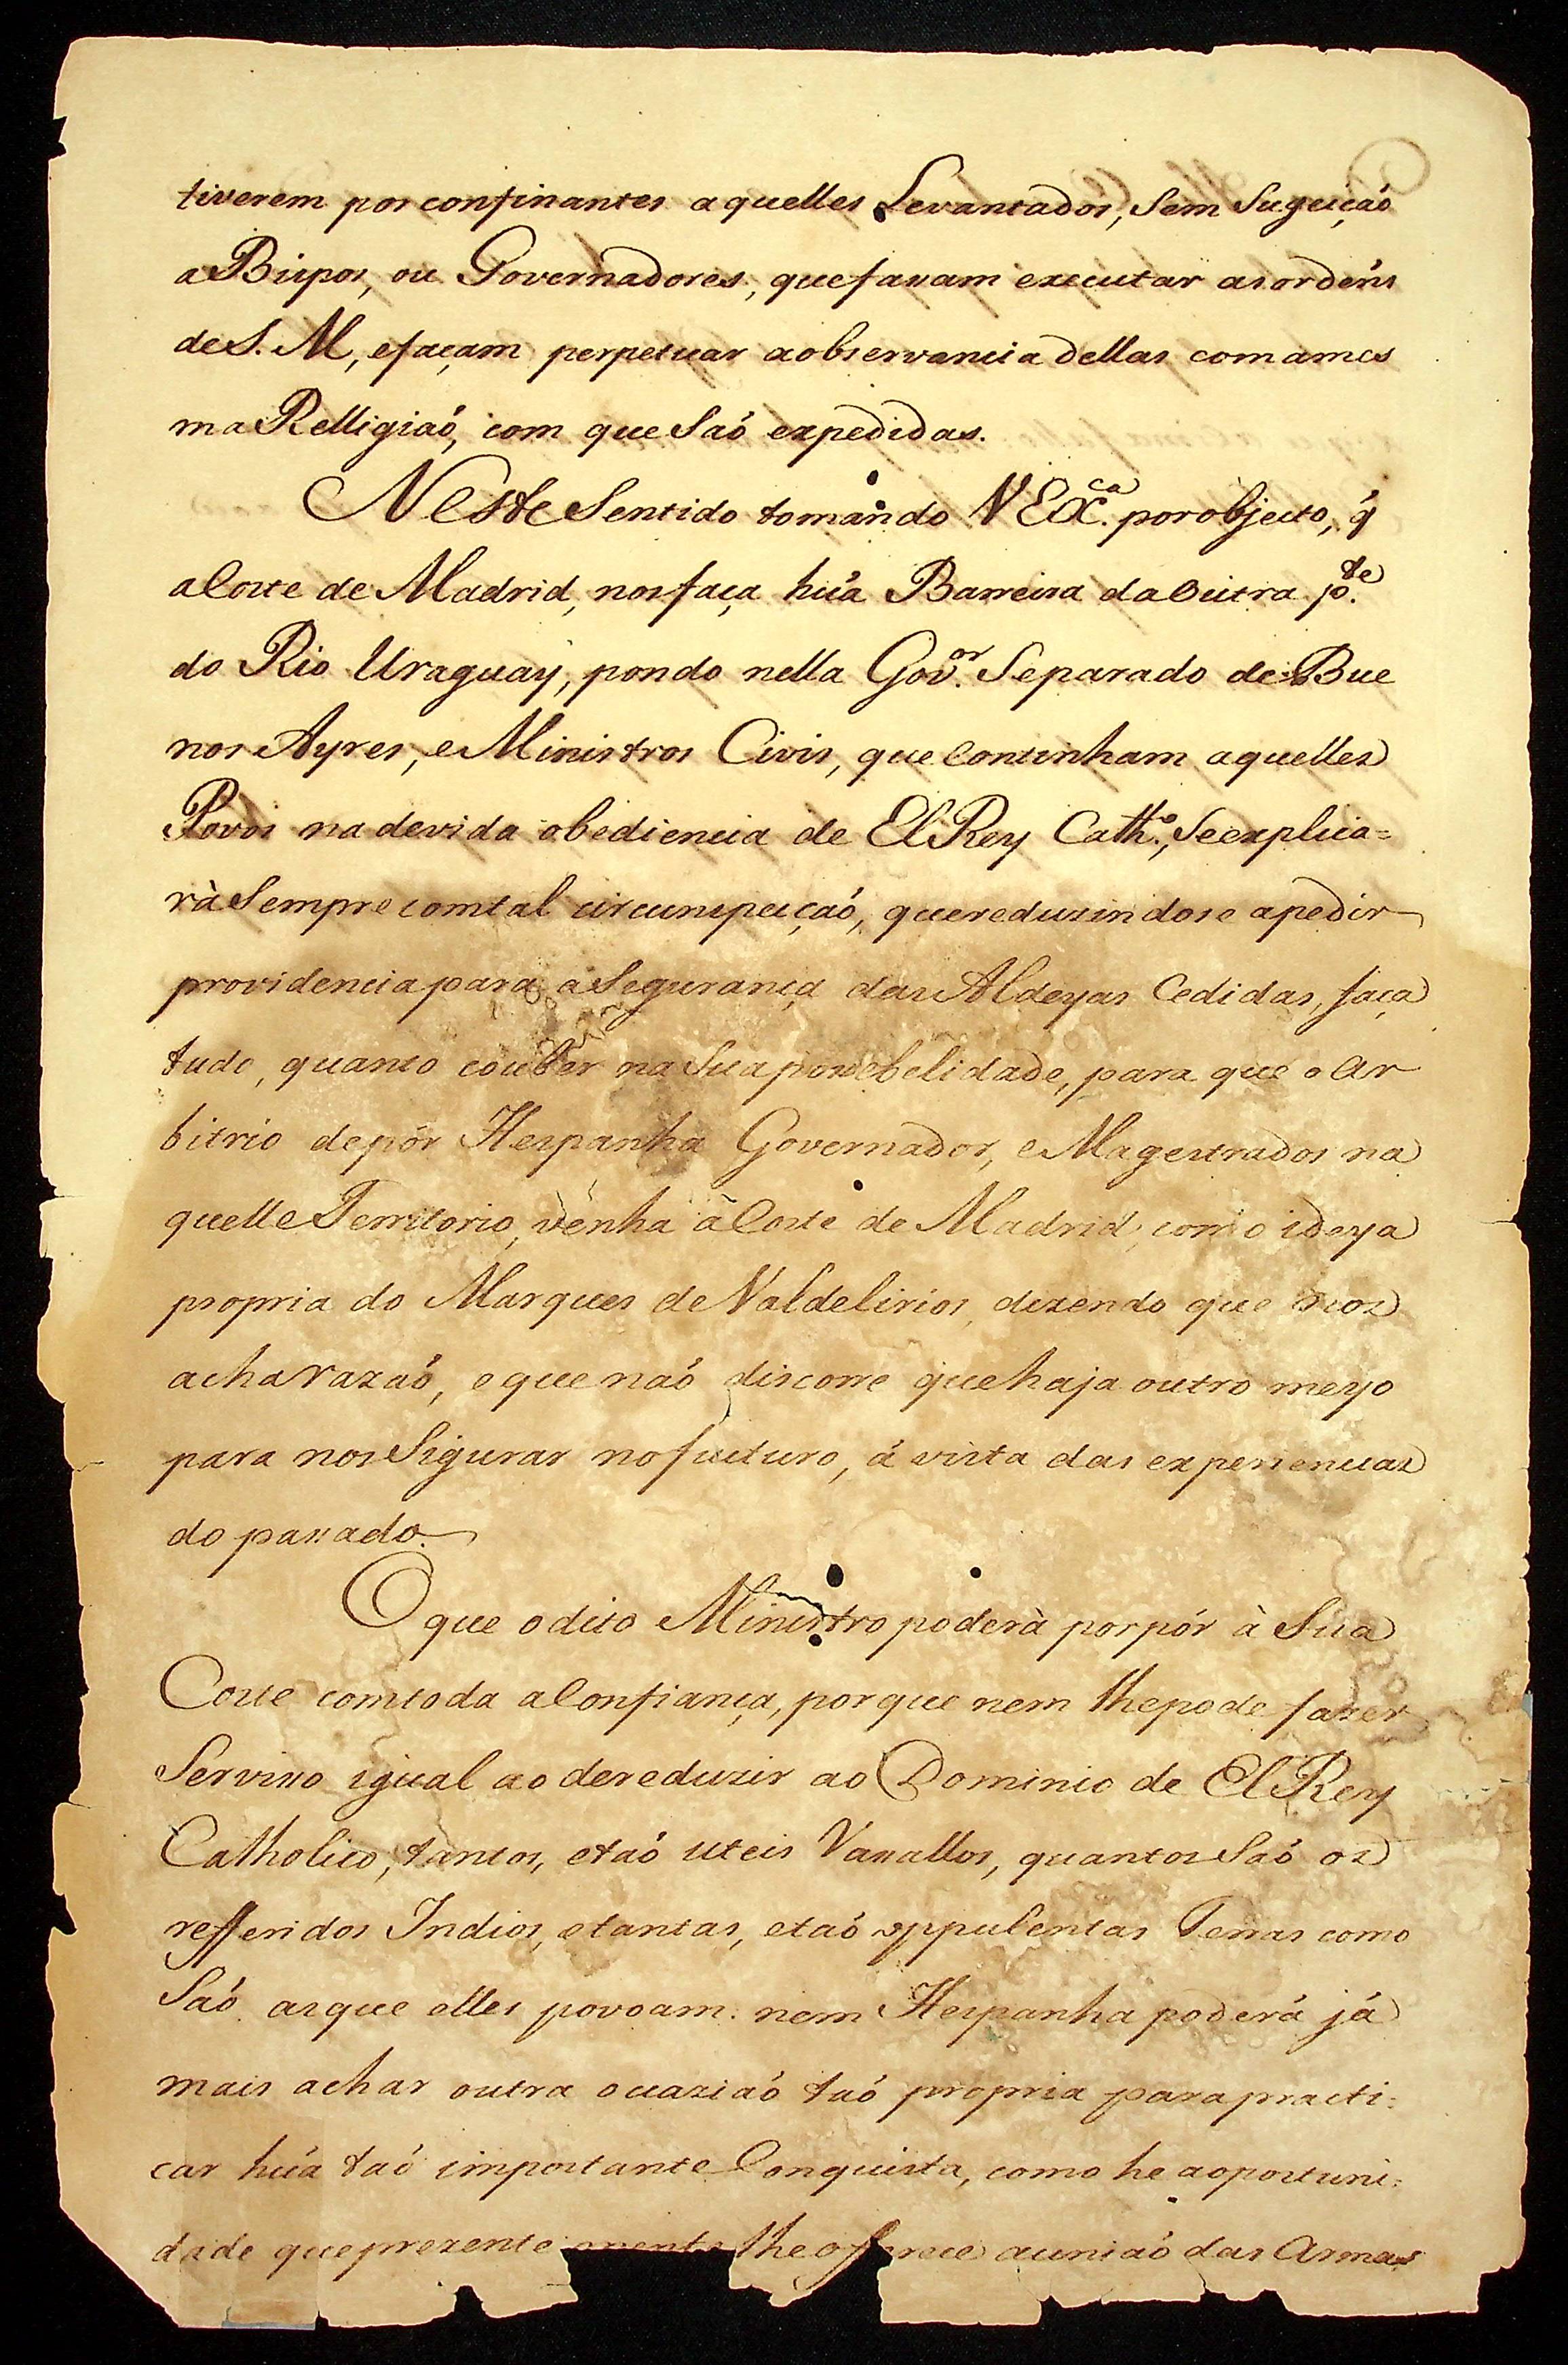 tiverem por confinantes aquelles Levantados, sem sugeiçaó
a Bispos, ou Governadores, que façam executar as ordéns
de S. M, e façam perpetuar a observancia dellas com a mes
ma Relligiaó, com que saó expedidas.
Neste sentido tomando V Exca. por objecto, q̃
a Corte de Madrid, nos faça húa Barreira da Outra pte.
do Rio Uraguay, pondo nella Govor. separado de Bue
nos Ayres, e Ministros Civis, que Contenham aquelles
Povos na devida obediencia de El Rey Catho., se explica=
rà sempre com tal circunspecçaó, que reduzindose a pedir
providencia para a segurança das Aldeyas Cedidas, faça
tudo, quanto couber na sua possebelidade, para que o Ar
bitrio de pór Hespanha Governador, e Magestrados na
quelle Territorio, venha à Corte de Madrid, como ideya
propria do Marques de Valdelirios, dizendo que nos
acha razaó, e que naó discorre que haja outro meyo
para nos sigurar no futuro, á vista das experiencias
do passado.
O que o dito Ministro poderà porpór à sua
Corte com toda a Confiança, por que nem lhe pode fazer
serviso igual ao de reduzir ao Dominio de El Rey
Catholico, tantos, e taó uteis Vassallos, quantos saó os
refferidos Indios, e tantas, e taó oppulentas Terras como
saó as que elles povoam. nem Hespanha poderá já
mais achar outra ocaziaó taó propria para practi=
car húa taó importante Conquista, como he a oportuni=
dade que prezente mente lhe offerece a uniaó das Armas